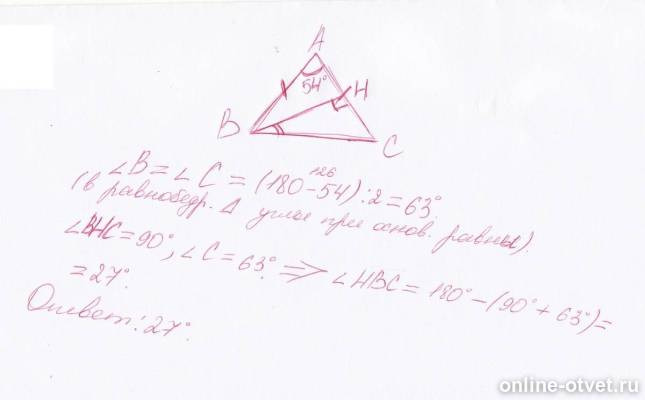 A
54°
H
B
C
∠B = ∠C = (180 - 54) : 2 = 63°
126
(в равнобедр. Δ углы при основ. равны).
∠BHC = 90°, ∠C = 63° ⟹ ∠HBC = 180° - (90° + 63°) =
= 27°.
Ответ: 27°.
online-otvet.ru